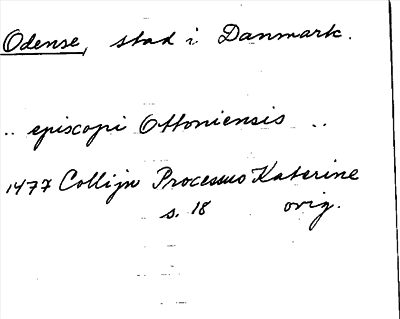 Odense, stad i Danmark.
.. episcopi Ottoniensis ..
1477 Collijn Processus Katerine
s. 18 orig.